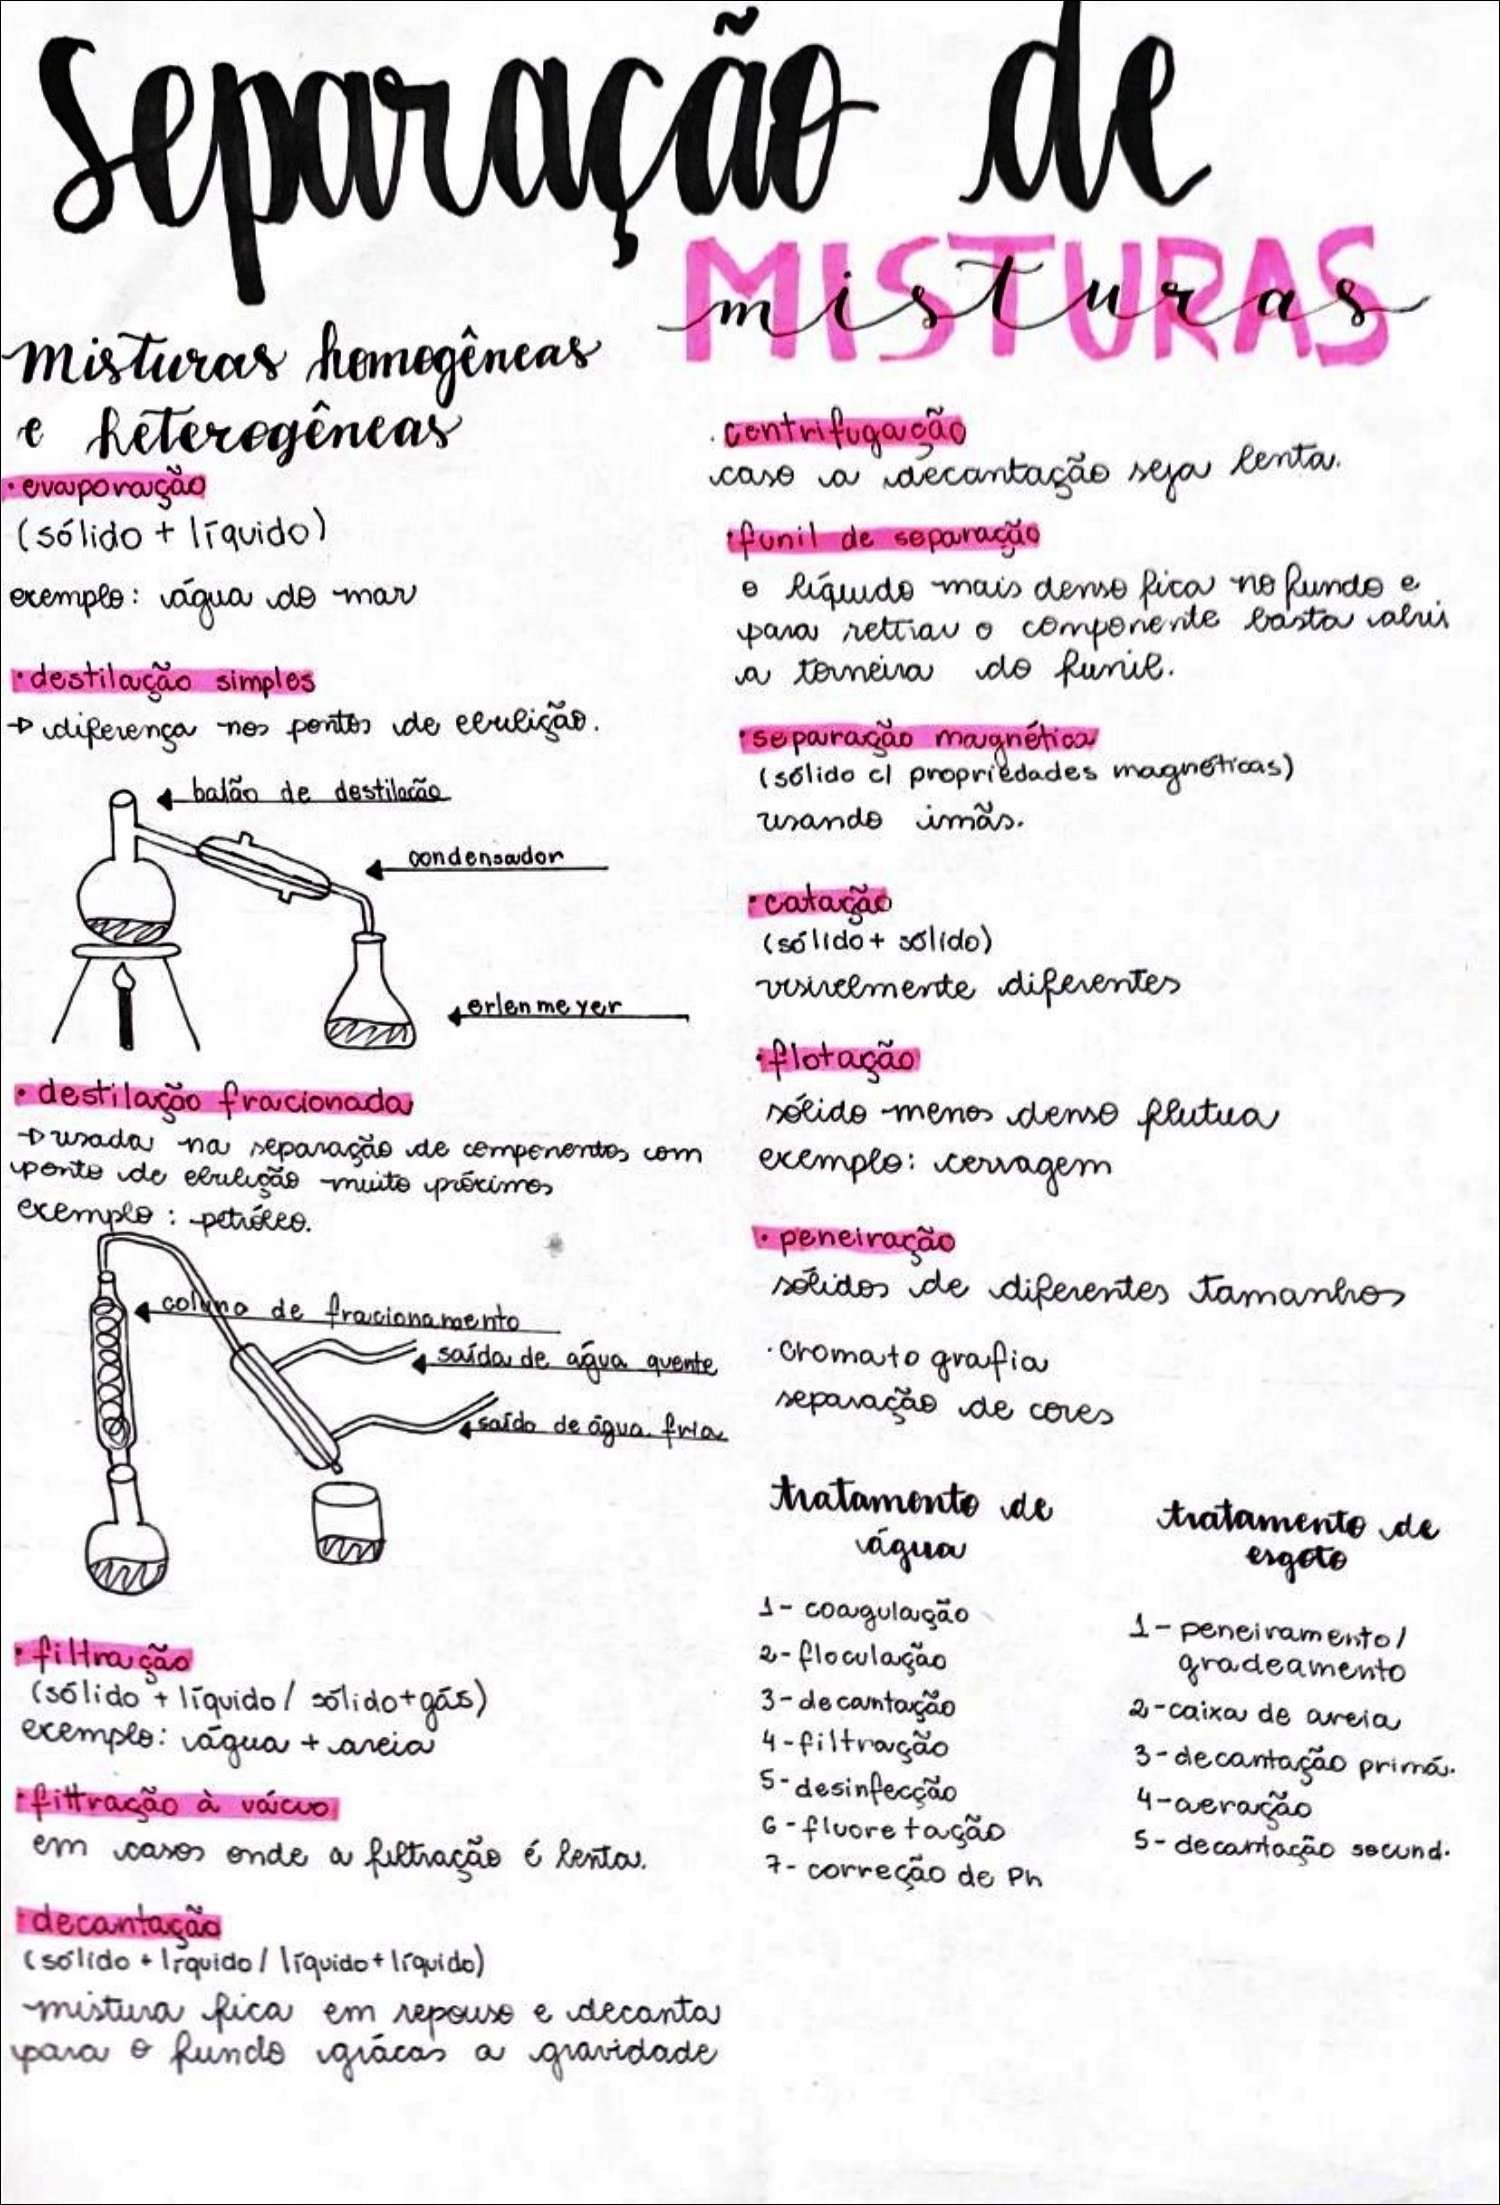 Separação de
MISTURAS
misturas
Misturas homogêneas
e heterogêneas
• evaporação
(sólido + líquido)
exemplo: água do mar
• destilação simples
→ diferença nos pontos de ebulição.
balão de destilação
condensador
erlenmeyer
• destilação fracionada
→ usada na separação de componentes com
ponto de ebulição muito próximos
exemplo: petróleo.
coluna de fracionamento
saída de água quente
saída de água fria
• filtração
(sólido + líquido / sólido+gás)
exemplo: água + areia
• filtração à vácuo
em casos onde a filtração é lenta.
• decantação
(sólido + líquido / líquido + líquido)
mistura fica em repouso e decanta
para o fundo grácas a gravidade
• centrifugação
caso a decantação seja lenta.
• funil de separação
o líquido mais denso fica no fundo e
para retirar o componente basta abrir
a torneira do funil.
• separação magnética
(sólido c/ propriedades magnéticas)
usando imãs.
• catação
(sólido + sólido)
visivelmente diferentes
• flotação
sólido menos denso flutua
exemplo: cervagem
• peneiração
sólidos de diferentes tamanhos
• cromatografia
separação de cores
tratamento de
água
1- coagulação
2- floculação
3- decantação
4- filtração
5- desinfecção
6- fluoretação
7- correção de Ph
tratamento de
esgoto
1- peneiramento/
gradeamento
2- caixa de areia
3- decantação primá.
4- aeração
5- decantação secund.